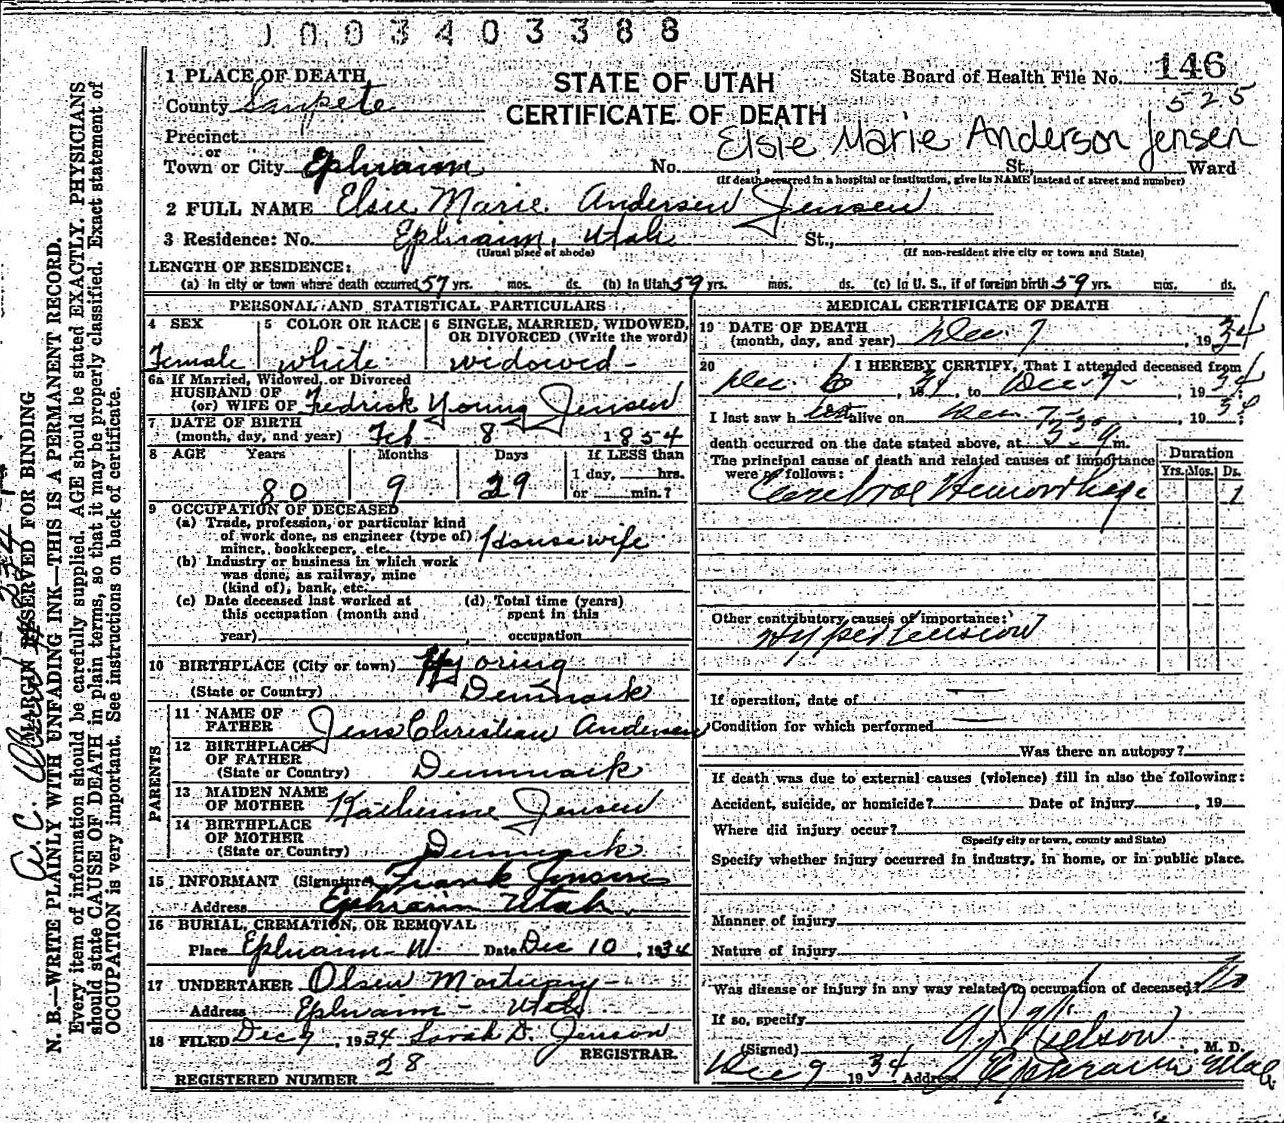 0003403388
1 PLACE OF DEATH
STATE OF UTAH
CERTIFICATE OF DEATH
State Board of Health File No. 146
525
County Sanpete
Elsie Marie Anderson Jensen
Precinct
or
Town or City Ephraim No. St., Ward
(If death occurred in a hospital or institution, give its NAME instead of street and number)
2 FULL NAME Elsie Marie Andersen Jensen
3 Residence: No. Ephraim, Utah St.,
(Usual place of abode) (If non-resident give city or town and State)
LENGTH OF RESIDENCE:
(a) In city or town where death occurred 57 yrs. mos. ds. (b) In Utah 59 yrs. mos. ds. (c) In U. S., if of foreign birth 59 yrs. mos. ds.
PERSONAL AND STATISTICAL PARTICULARS
4 SEX
Female
5 COLOR OR RACE
white
6 SINGLE, MARRIED, WIDOWED, OR DIVORCED (Write the word)
widowed
6a If Married, Widowed, or Divorced
HUSBAND OF
(or) WIFE OF Fedrick Young Jensen
7 DATE OF BIRTH
(month, day, and year) Feb - 8 1854
8 AGE Years Months Days If LESS than
1 day, hrs.
80 9 29 or min.?
9 OCCUPATION OF DECEASED
(a) Trade, profession, or particular kind
of work done, as engineer (type of)
miner, bookkeeper, etc. Housewife
(b) Industry or business in which work
was done, as railway, mine
(kind of), bank, etc.
(c) Date deceased last worked at
this occupation (month and
year)
(d) Total time (years)
spent in this
occupation
10 BIRTHPLACE (City or town) Hjoring
(State or Country) Denmark
PARENTS
11 NAME OF
FATHER Jens Christian Andersen
12 BIRTHPLACE
OF FATHER
(State or Country) Denmark
13 MAIDEN NAME
OF MOTHER Katherine Jensen
14 BIRTHPLACE
OF MOTHER
(State or Country) Denmark
15 INFORMANT (Signature) Frank Jensen
Address Ephraim Utah
16 BURIAL, CREMATION, OR REMOVAL
Place Ephraim U. Date Dec 10, 1934
17 UNDERTAKER Olsen Mortuary
Address Ephraim - Utah
18 FILED Dec 9, 1934 Sarah D. Jenson
REGISTRAR.
REGISTERED NUMBER 28
MEDICAL CERTIFICATE OF DEATH
19 DATE OF DEATH
(month, day, and year) Dec 7, 1934
20 I HEREBY CERTIFY, That I attended deceased from
Dec. 6, 1934, to Dec-7-, 1934
I last saw h alive on Dec. 7, 19
death occurred on the date stated above, at m.
The principal cause of death and related causes of importance
were as follows:
Duration
Yrs. Mos. Ds.
Cerebral Hemorrhage 1
Other contributory causes of importance:
Hypertension
If operation, date of
Condition for which performed
Was there an autopsy?
If death was due to external causes (violence) fill in also the following:
Accident, suicide, or homicide? Date of injury , 19
Where did injury occur?
(Specify city or town, county and State)
Specify whether injury occurred in industry, in home, or in public place.
Manner of injury
Nature of injury
Was disease or injury in any way related to occupation of deceased? No
If so, specify
(Signed) Nielson, M. D.
Dec 9 1934 Address Ephraim Utah
MARGIN RESERVED FOR BINDING
N. B.—WRITE PLAINLY WITH UNFADING INK—THIS IS A PERMANENT RECORD.
Every item of information should be carefully supplied. AGE should be stated EXACTLY. PHYSICIANS
should state CAUSE OF DEATH in plain terms, so that it may be properly classified. Exact statement of
OCCUPATION is very important. See instructions on back of certificate.